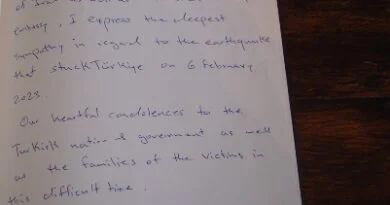 of
embassy, I express the deepest
sympathy in regard to the earthquake
that stuck Türkiye on 6 february
2023.
Our heartful condolences to the
Turkish nation & goverment as well
as the families of the victims in
this difficult time.